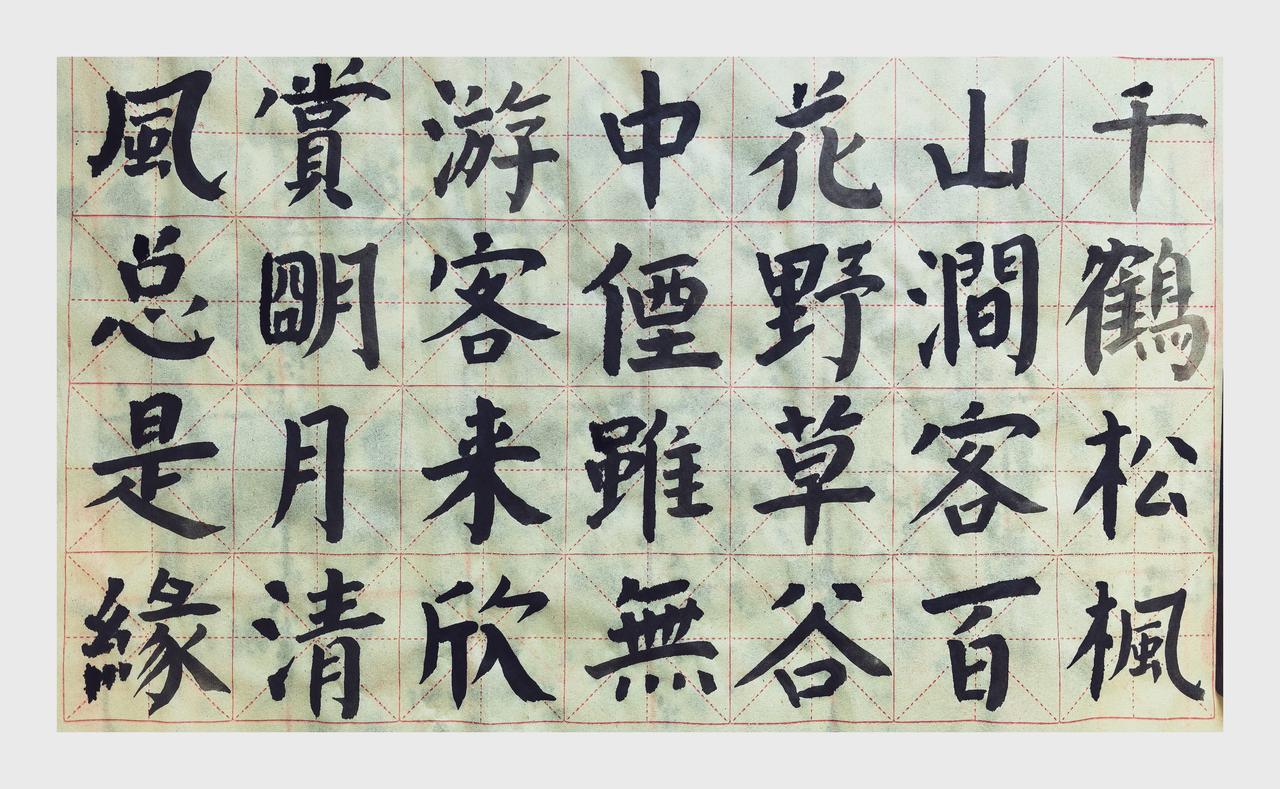 千鶴松楓
山澗客百
花野草谷
中僊雖無
游客来欣
賞朙月清
風总是緣